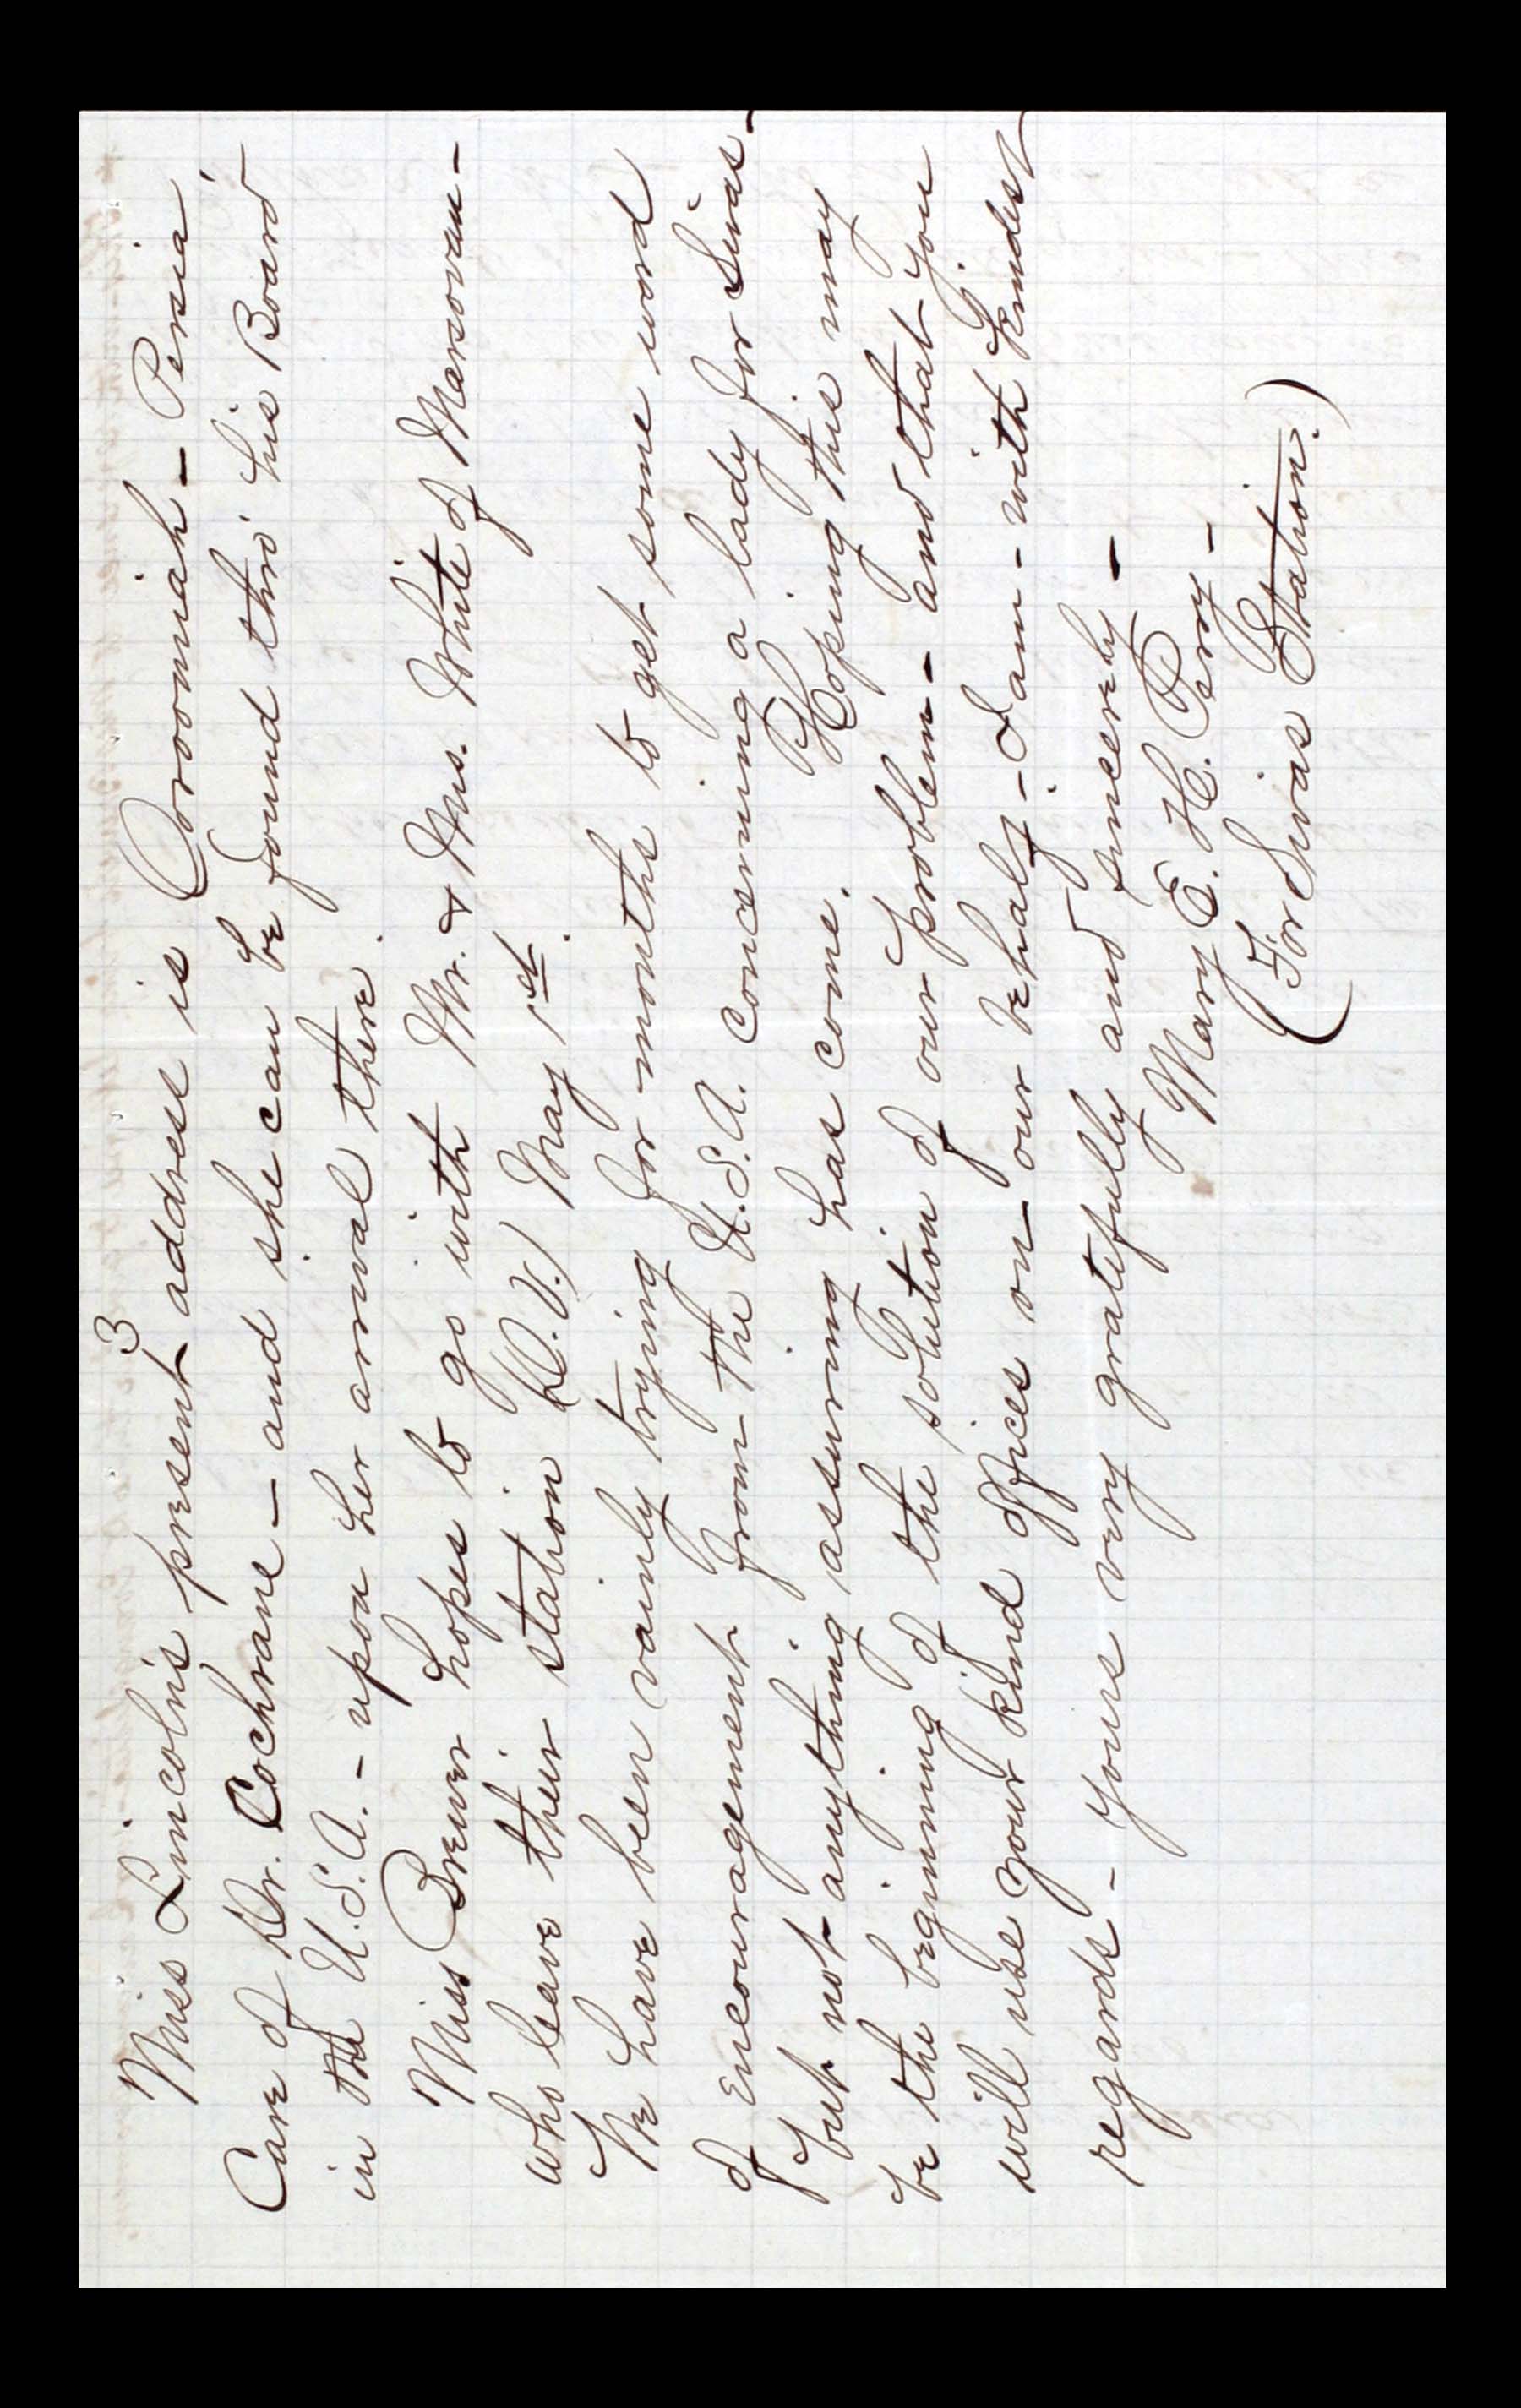 3
Miss Lincoln's present address is Oroomiah - Persia
Care of Dr. Cochrane - and she can be found thro' his Board
in the U.S.A. - upon her arrival there.
Miss Brewer hopes to go with Mr. & Mrs. White of Marsovan -
who leave their station (D.V.) May 1st.
We have been vainly trying for months to get some word
of encouragement from the U.S.A. concerning a lady for Sivas -
but not anything assuring has come. Hoping this may
be the beginning of the solution of our problem - and that you
will use your kind offices on our behalf - I am - with kindest
regards - yours very gratefully and sincerely -
Mary E. H. Perry -
(For Sivas Station.)